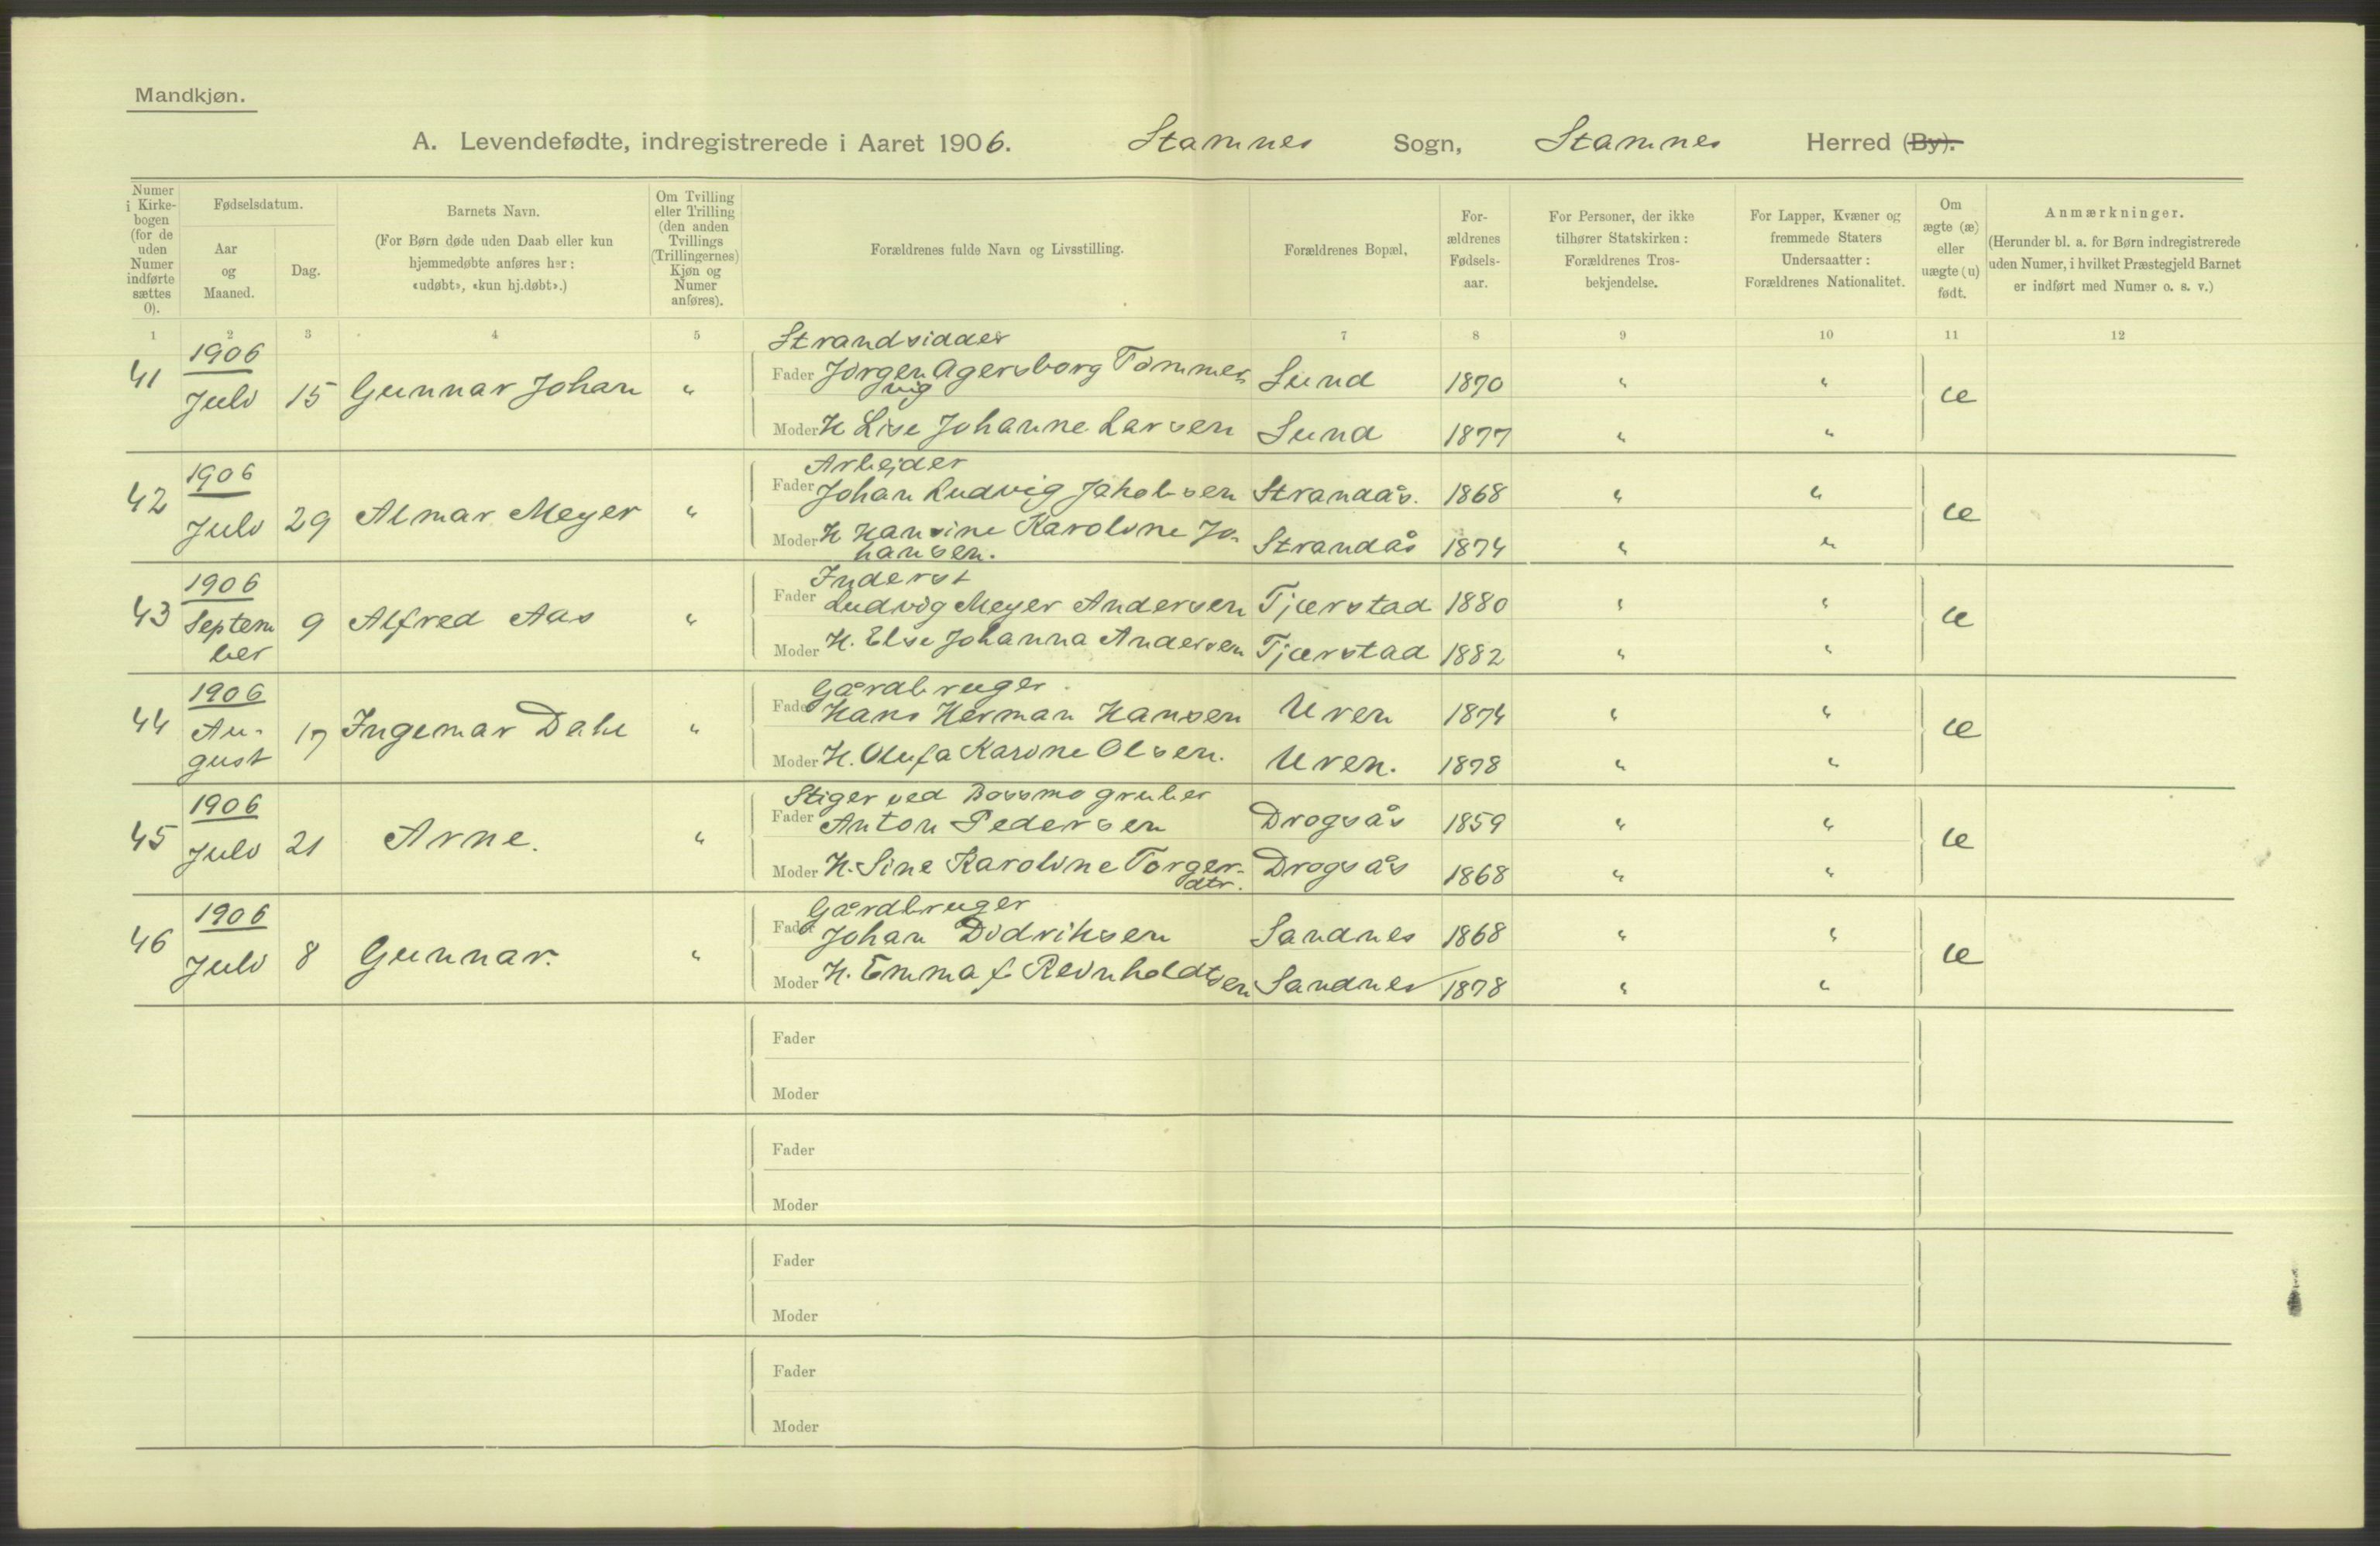 Mandkjøn.
A. Levendefødte, indregistrerede i Aaret 1906. Stamnes Sogn, Stamnes Herred (By).
Numer i Kirkebogen (for de uden Numer indførte sættes 0).
Fødselsdatum.
Aar og Maaned.
Dag.
Barnets Navn.
(For Børn døde uden Daab eller kun hjemmedøbte anføres her: «udøbt», «kun hj.døbt».)
Om Tvilling eller Trilling (den anden Tvillings (Trillingernes) Kjøn og Numer anføres).
Forældrenes fulde Navn og Livsstilling.
Forældrenes Bopæl,
Forældrenes Fødselsaar.
For Personer, der ikke tilhører Statskirken: Forældrenes Trosbekjendelse.
For Lapper, Kvæner og fremmede Staters Undersaatter: Forældrenes Nationalitet.
Om ægte (æ) eller uægte (u) født.
Anmærkninger.
(Herunder bl. a. for Børn indregistrerede uden Numer, i hvilket Præstegjeld Barnet er indført med Numer o. s. v.)
1 2 3 4 5 7 8 9 10 11 12
Strandsidder
41 1906 Juli 15 Gunnar Johan " Fader Jørgen Agersborg Tommervig Sund 1870 " " æ
Moder H Lise Johanne Larsen Sund 1877 " "
Arbejder
42 1906 Juli 29 Almar Meyer " Fader Johan Ludvig Jakobsen Strandås. 1868 " " æ
Moder H Hansine Karoline Johansen. Strandås 1874 " "
Inderst
43 1906 September 9 Alfred Aas " Fader Ludvig Meyer Andersen Tjærstad 1880 " " æ
Moder H. Else Johanna Andersen Tjærstad 1882 " "
Gårdbruger
44 1906 August 17 Ingemar Dahl " Fader Hans Herman Hansen Uren 1874 " " æ
Moder H. Olufa Karine Olsen. Uren. 1878 " "
Stiger ved Bossmo gruber
45 1906 Juli 21 Arne. " Fader Anton Pedersen Drogsås 1859 " " æ
Moder H. Sine Karoline Torger-dtr. Drogsås 1868 " "
Gårdbruger
46 1906 Juli 8 Gunnar. " Fader Johan Didriksen Sandnes 1868 " " æ
Moder H. Emma f Reinholdtsen Sandnes 1878 " "
Fader
Moder
Fader
Moder
Fader
Moder
Fader
Moder